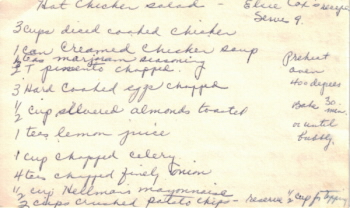 Hot Chicken Salad - Elsie Cox's recipe
Serves 9.
3 cups diced cooked chicken
1 can creamed chicken soup
1 teas marjoram seasoning
2 T pimento chopped.
3 Hard cooked eggs chopped
1/2 cup slivered almonds toasted
1 teas lemon juice
1 cup chopped celery
4 teas chopped finely onion
1/2 cup Hellman's mayonnaise
2 cups crushed potato chips - reserve 1/2 cup for topping
Preheat
oven
400 degrees
Bake 30
min.
or until
bubbly.